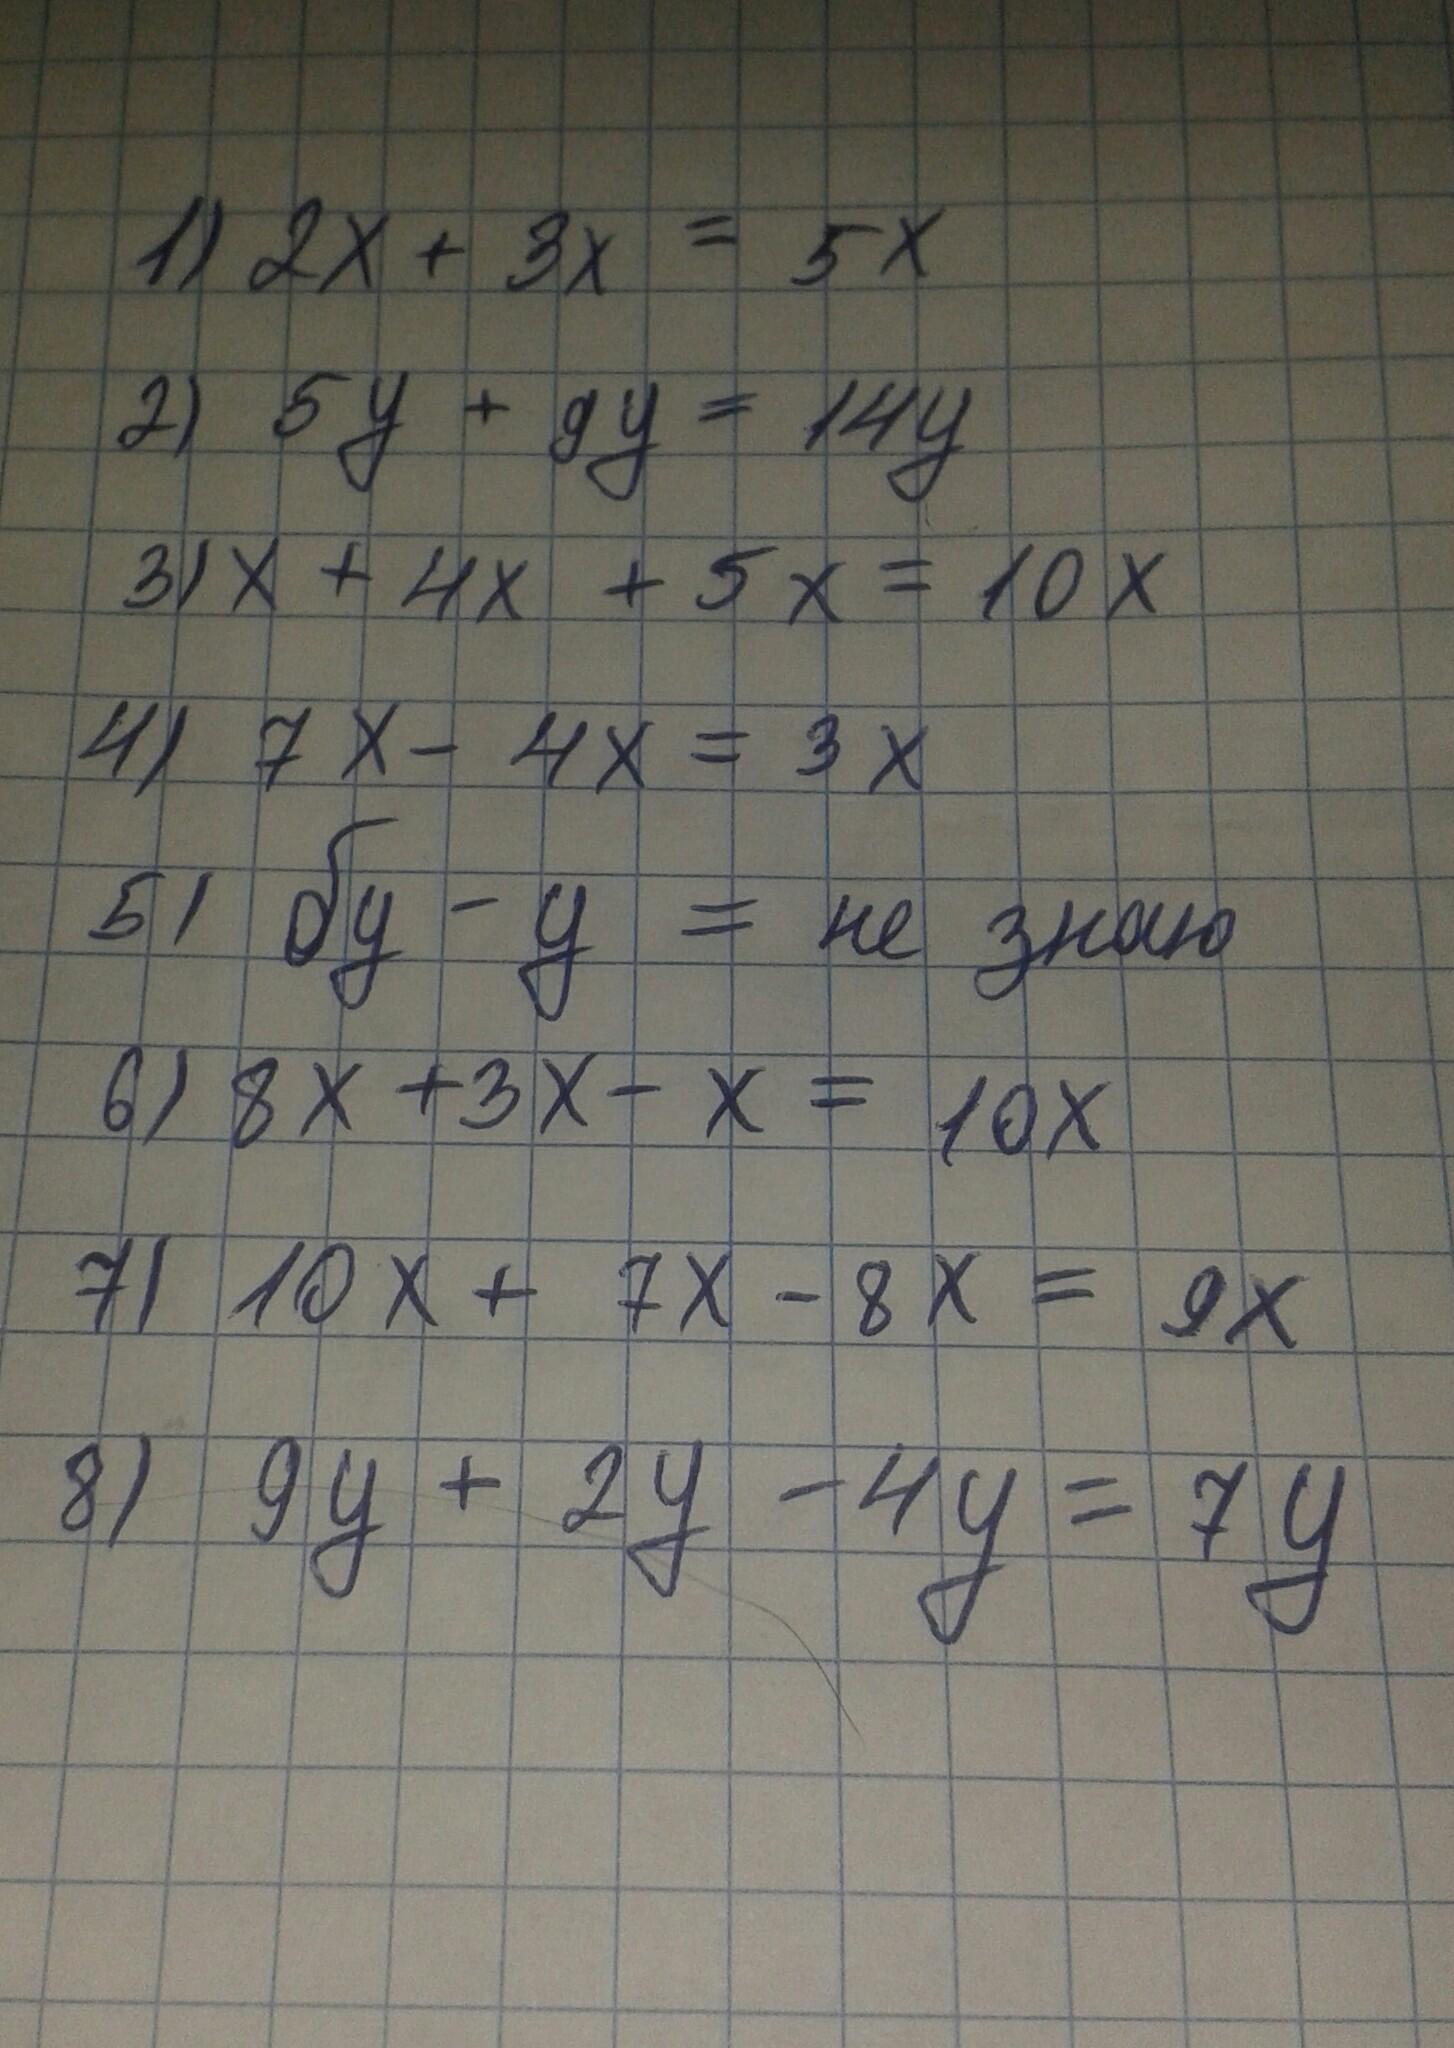 1) 2x + 3x = 5x
2) 5y + 9y = 14y
3) x + 4x + 5x = 10x
4) 7x - 4x = 3x
5) бy - y = не знаю
6) 8x + 3x - x = 10x
7) 10x + 7x - 8x = 9x
8) 9y + 2y - 4y = 7y